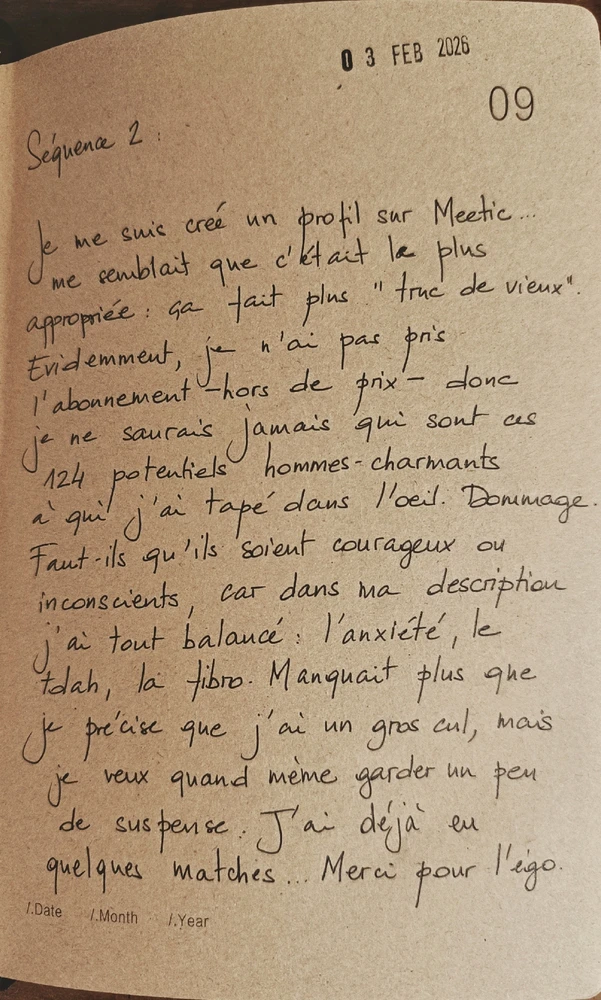 03 FEB 2026
09
Séquence 2 :
Je me suis créé un profil sur Meetic...
me semblait que c'était le plus
appropriée : ça fait plus "truc de vieux".
Evidemment, je n'ai pas pris
l'abonnement -hors de prix- donc
je ne saurais jamais qui sont ces
124 potentiels hommes-charmants
à qui j'ai tapé dans l'oeil. Dommage.
Faut-ils qu'ils soient courageux ou
inconscients, car dans ma description
j'ai tout balancé : l'anxiété, le
tdah, la fibro. Manquait plus que
je précise que j'ai un gros cul, mais
je veux quand même garder un peu
de suspense. J'ai déjà eu
quelques matches... Merci pour l'égo.
/.Date /.Month /.Year